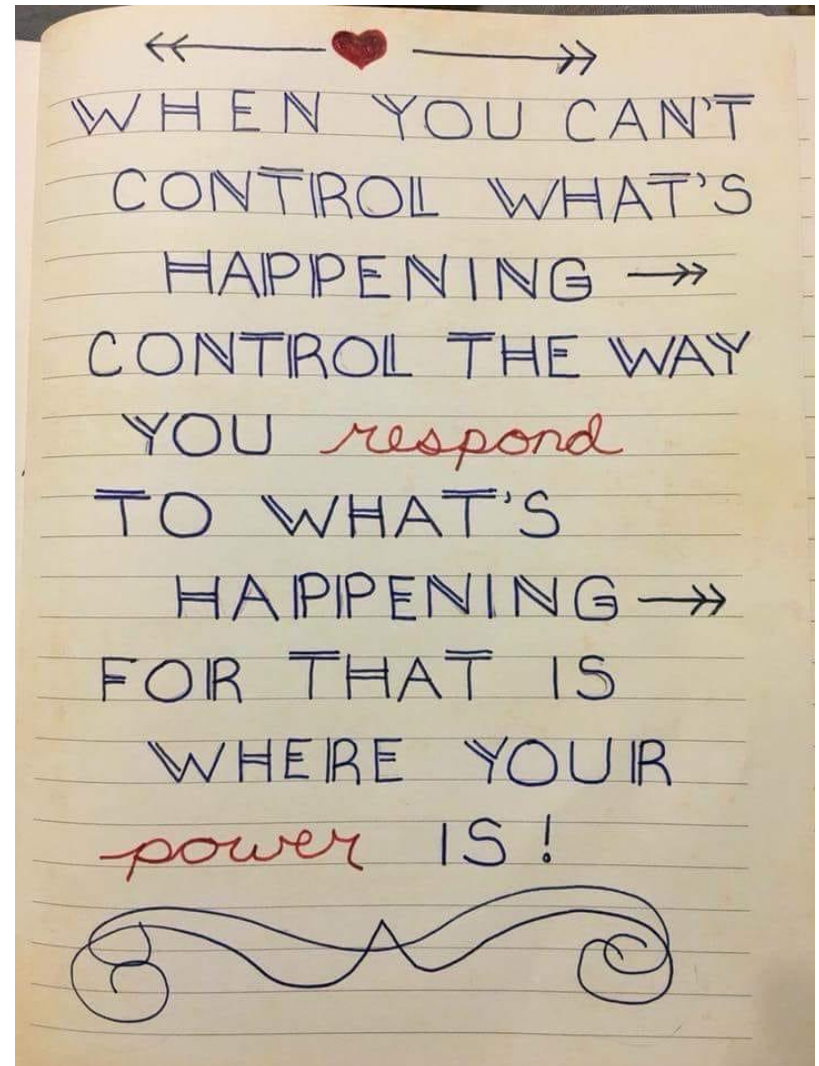 WHEN YOU CAN'T
CONTROL WHAT'S
HAPPENING →
CONTROL THE WAY
YOU respond
TO WHAT'S
HAPPENING →
FOR THAT IS
WHERE YOUR
power IS!